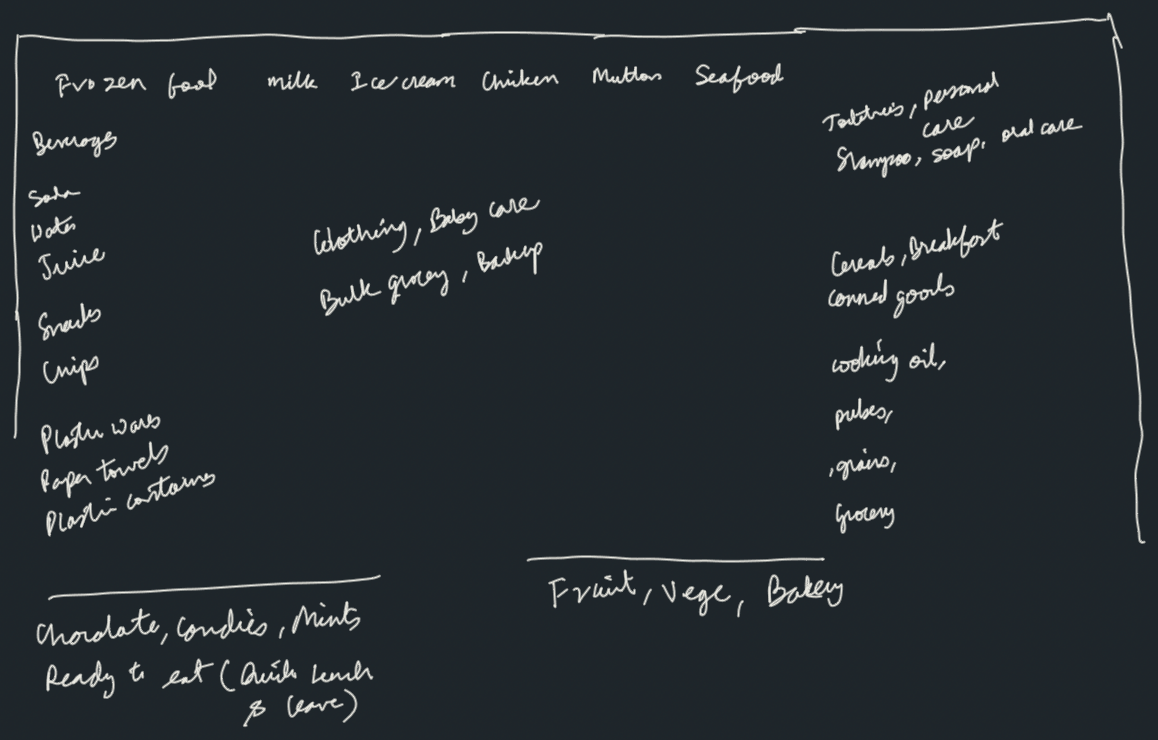 Frozen food milk Ice cream Chicken Mutton Seafood
Beverages
Soda
Water
Juice
Snacks
Chips
Plastic wares
Paper towels
Plastic containers
Clothing, Baby care
Bulk grocey, Backup
Toiletries, personal
care
Shampoo, soap, oral care
Cereals, Breakfast
canned goods
cooking oil,
pulses,
,grains,
Grocery
Chocolate, Candies, Mints
Ready to eat (Quick lunch
& leave)
Fruit, Vege, Bakery